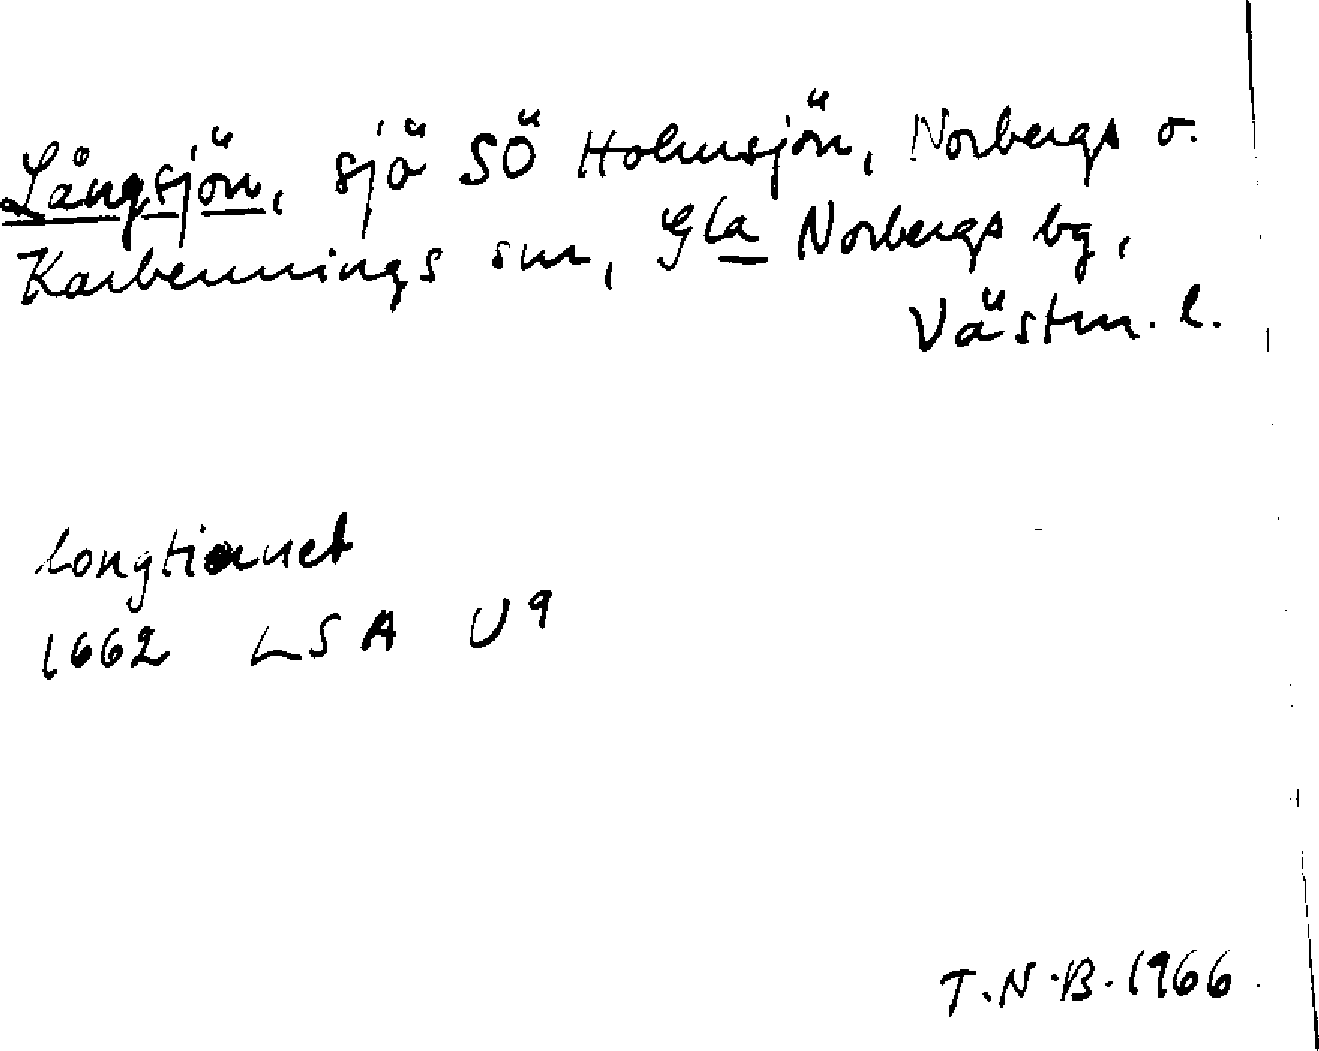 Långsjön, sjö SÖ Holmsjön, Norbergs o.
Karbennings snr, Gla Norbergs bg,
Västm. l.
longtiernet
1662 LSA U9
T.N.B. 1966.